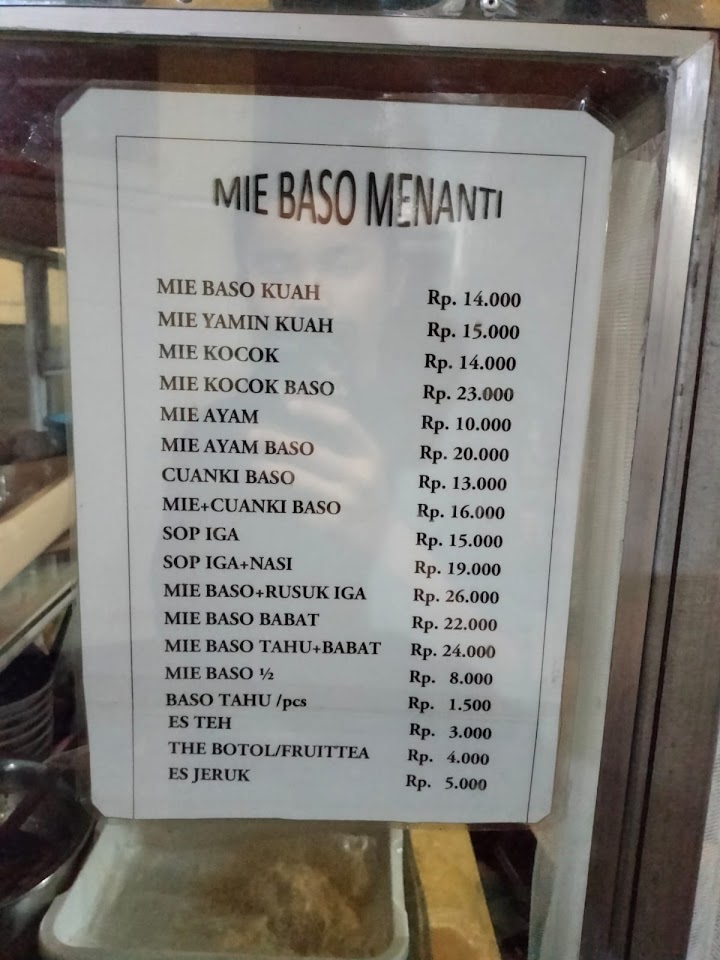 MIE BASO MENANTI
MIE BASO KUAH Rp. 14.000
MIE YAMIN KUAH Rp. 15.000
MIE KOCOK Rp. 14.000
MIE KOCOK BASO Rp. 23.000
MIE AYAM Rp. 10.000
MIE AYAM BASO Rp. 20.000
CUANKI BASO Rp. 13.000
MIE+CUANKI BASO Rp. 16.000
SOP IGA Rp. 15.000
SOP IGA+NASI Rp. 19.000
MIE BASO+RUSUK IGA Rp. 26.000
MIE BASO BABAT Rp. 22.000
MIE BASO TAHU+BABAT Rp. 24.000
MIE BASO ½ Rp. 8.000
BASO TAHU /pcs Rp. 1.500
ES TEH Rp. 3.000
THE BOTOL/FRUITTEA Rp. 4.000
ES JERUK Rp. 5.000